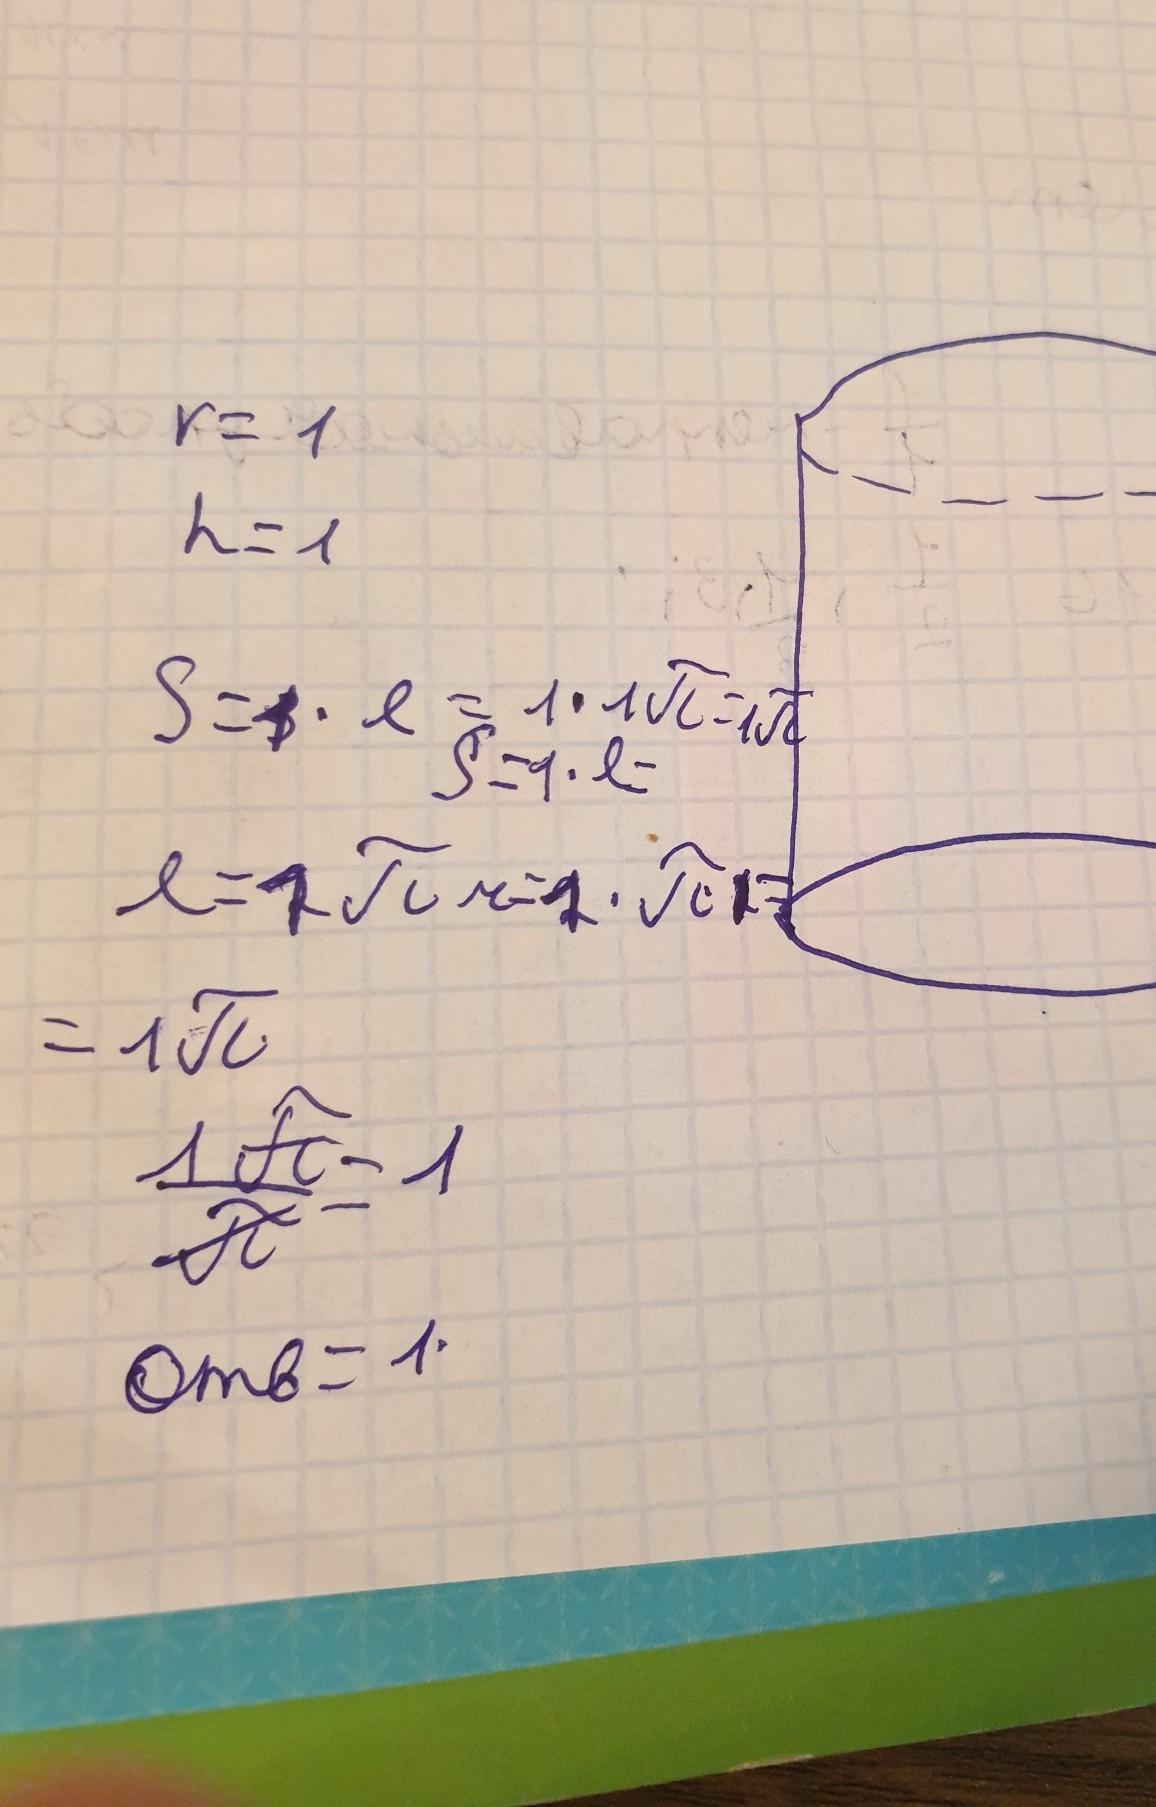 r = 1
h = 1
S = 1 · l = 1 · 1π = 1π
S = 1 · l =
l = 1 π r = 1 · π 1 =
= 1π
1π/π = 1
Отв = 1.